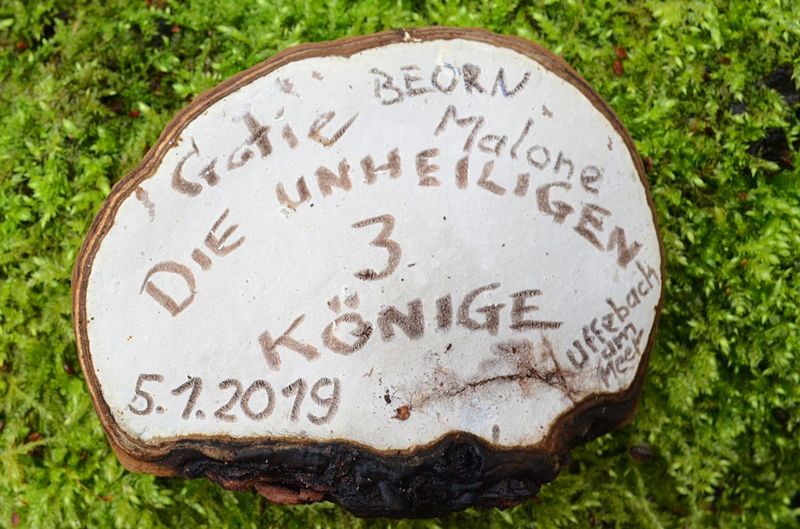 BEORN
Gratie
Malone
DIE UNHEILIGEN
3
KÖNIGE
5.1.2019
Uffebach
am
Meer